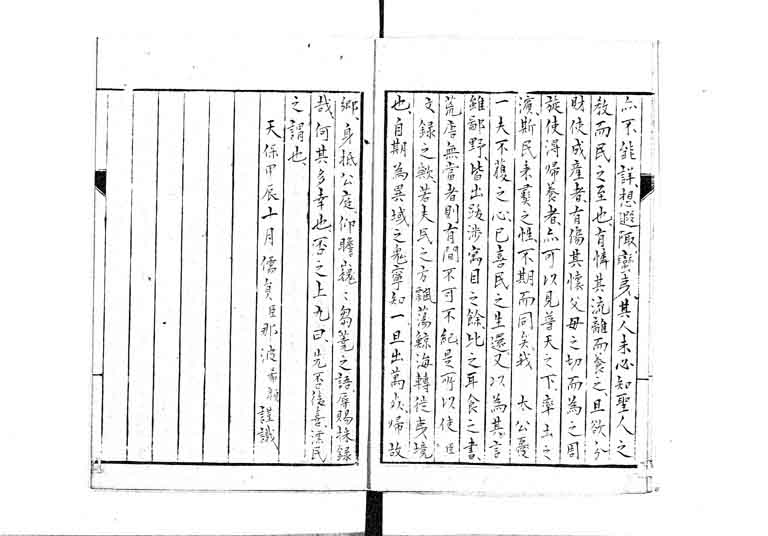 亦不能詳、想遐陬蠻夷、其人未必知聖人之
教而民之至也、有憐其流離而食之、且欲分
財使成產者、有傷其懷父母之切而為之周
旋使得歸養者、亦可以見普天之下率土之
濱、斯民秉彝之性不期而同矣、我 太公憂
一夫不獲之心、已喜民之生還、又以為其言
雖鄙野、皆出跋涉寓目之餘、比之耳食之書、
荒唐無當者則有間、不可不紀、是所以使臣
文錄之歟、若夫民之方飄蕩鯨海轉徙夷境
也、自期為異域之鬼、寧知一旦出萬死歸故
鄉、身抵公庭、仰瞻巍〻芻蕘之語、辱賜採錄
哉、何其多幸也、否之上九曰、先否後喜、漂民
之謂也、
天保甲辰十月 儒員臣那波希顏 謹識